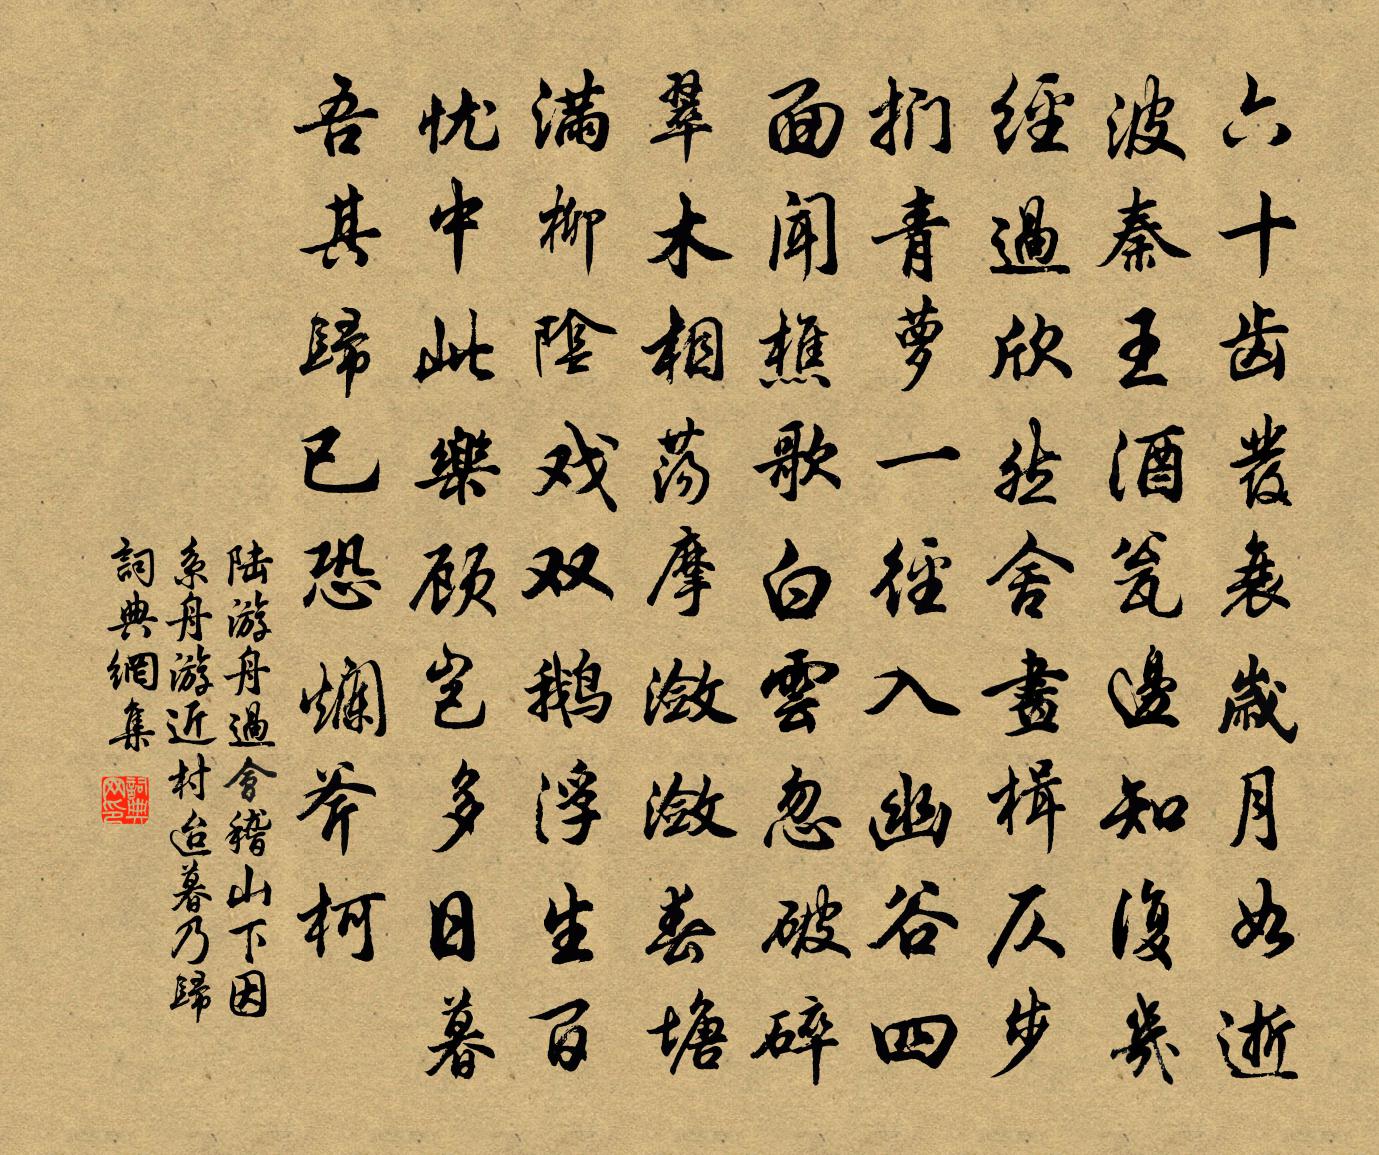 六十齿發衰歲月如逝
波秦王酒瓮邊知復幾
經過欣然舍畫楫仄步
扪青萝一徑入幽谷四
面聞樵歌白雲忽破碎
翠木相蕩摩潋潋春塘
满柳陰戏双鹅浮生百
忧中此樂顾岂多日暮
吾其歸已恐爛斧柯
陆游舟過會稽山下因
系舟游近村迨暮乃歸
詞典網集
詞典网印